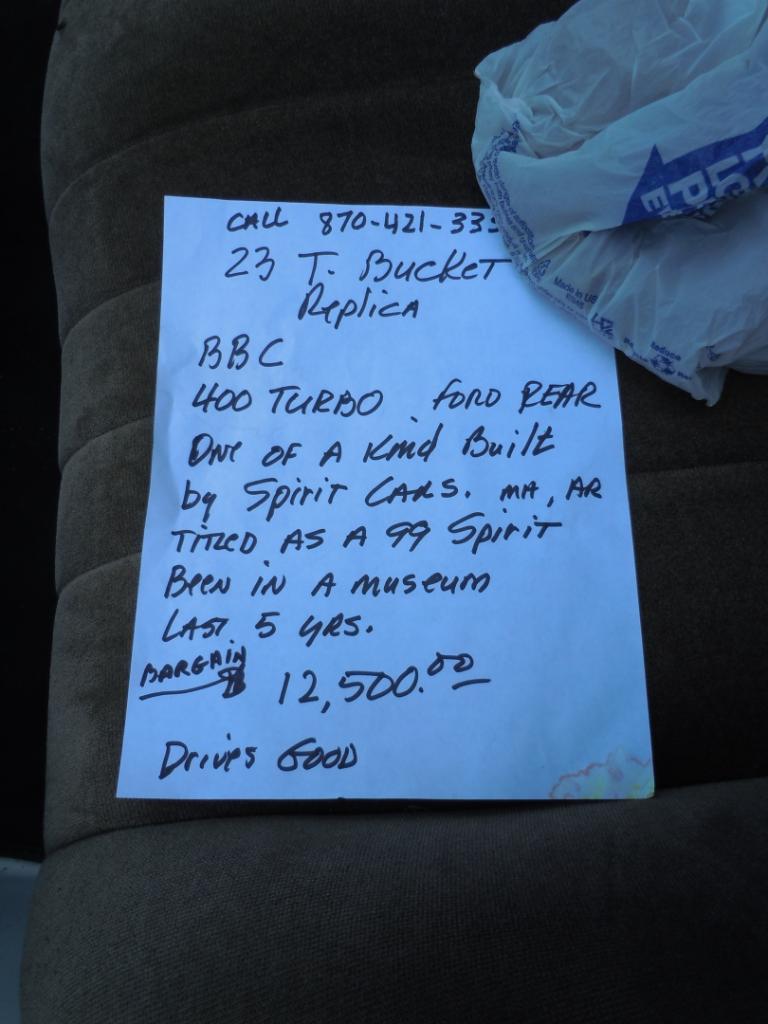 CALL 870-421-33
23 T. BUCKET
Replica
BBC
400 TURBO FORD REAR
One OF A Kind Built
by Spirit CARS. MH, AR
TITLED AS A 99 Spirit
Been IN A museum
LAST 5 YRS.
BARGAIN $ 12,500.00
Drives GOOD
Made in US